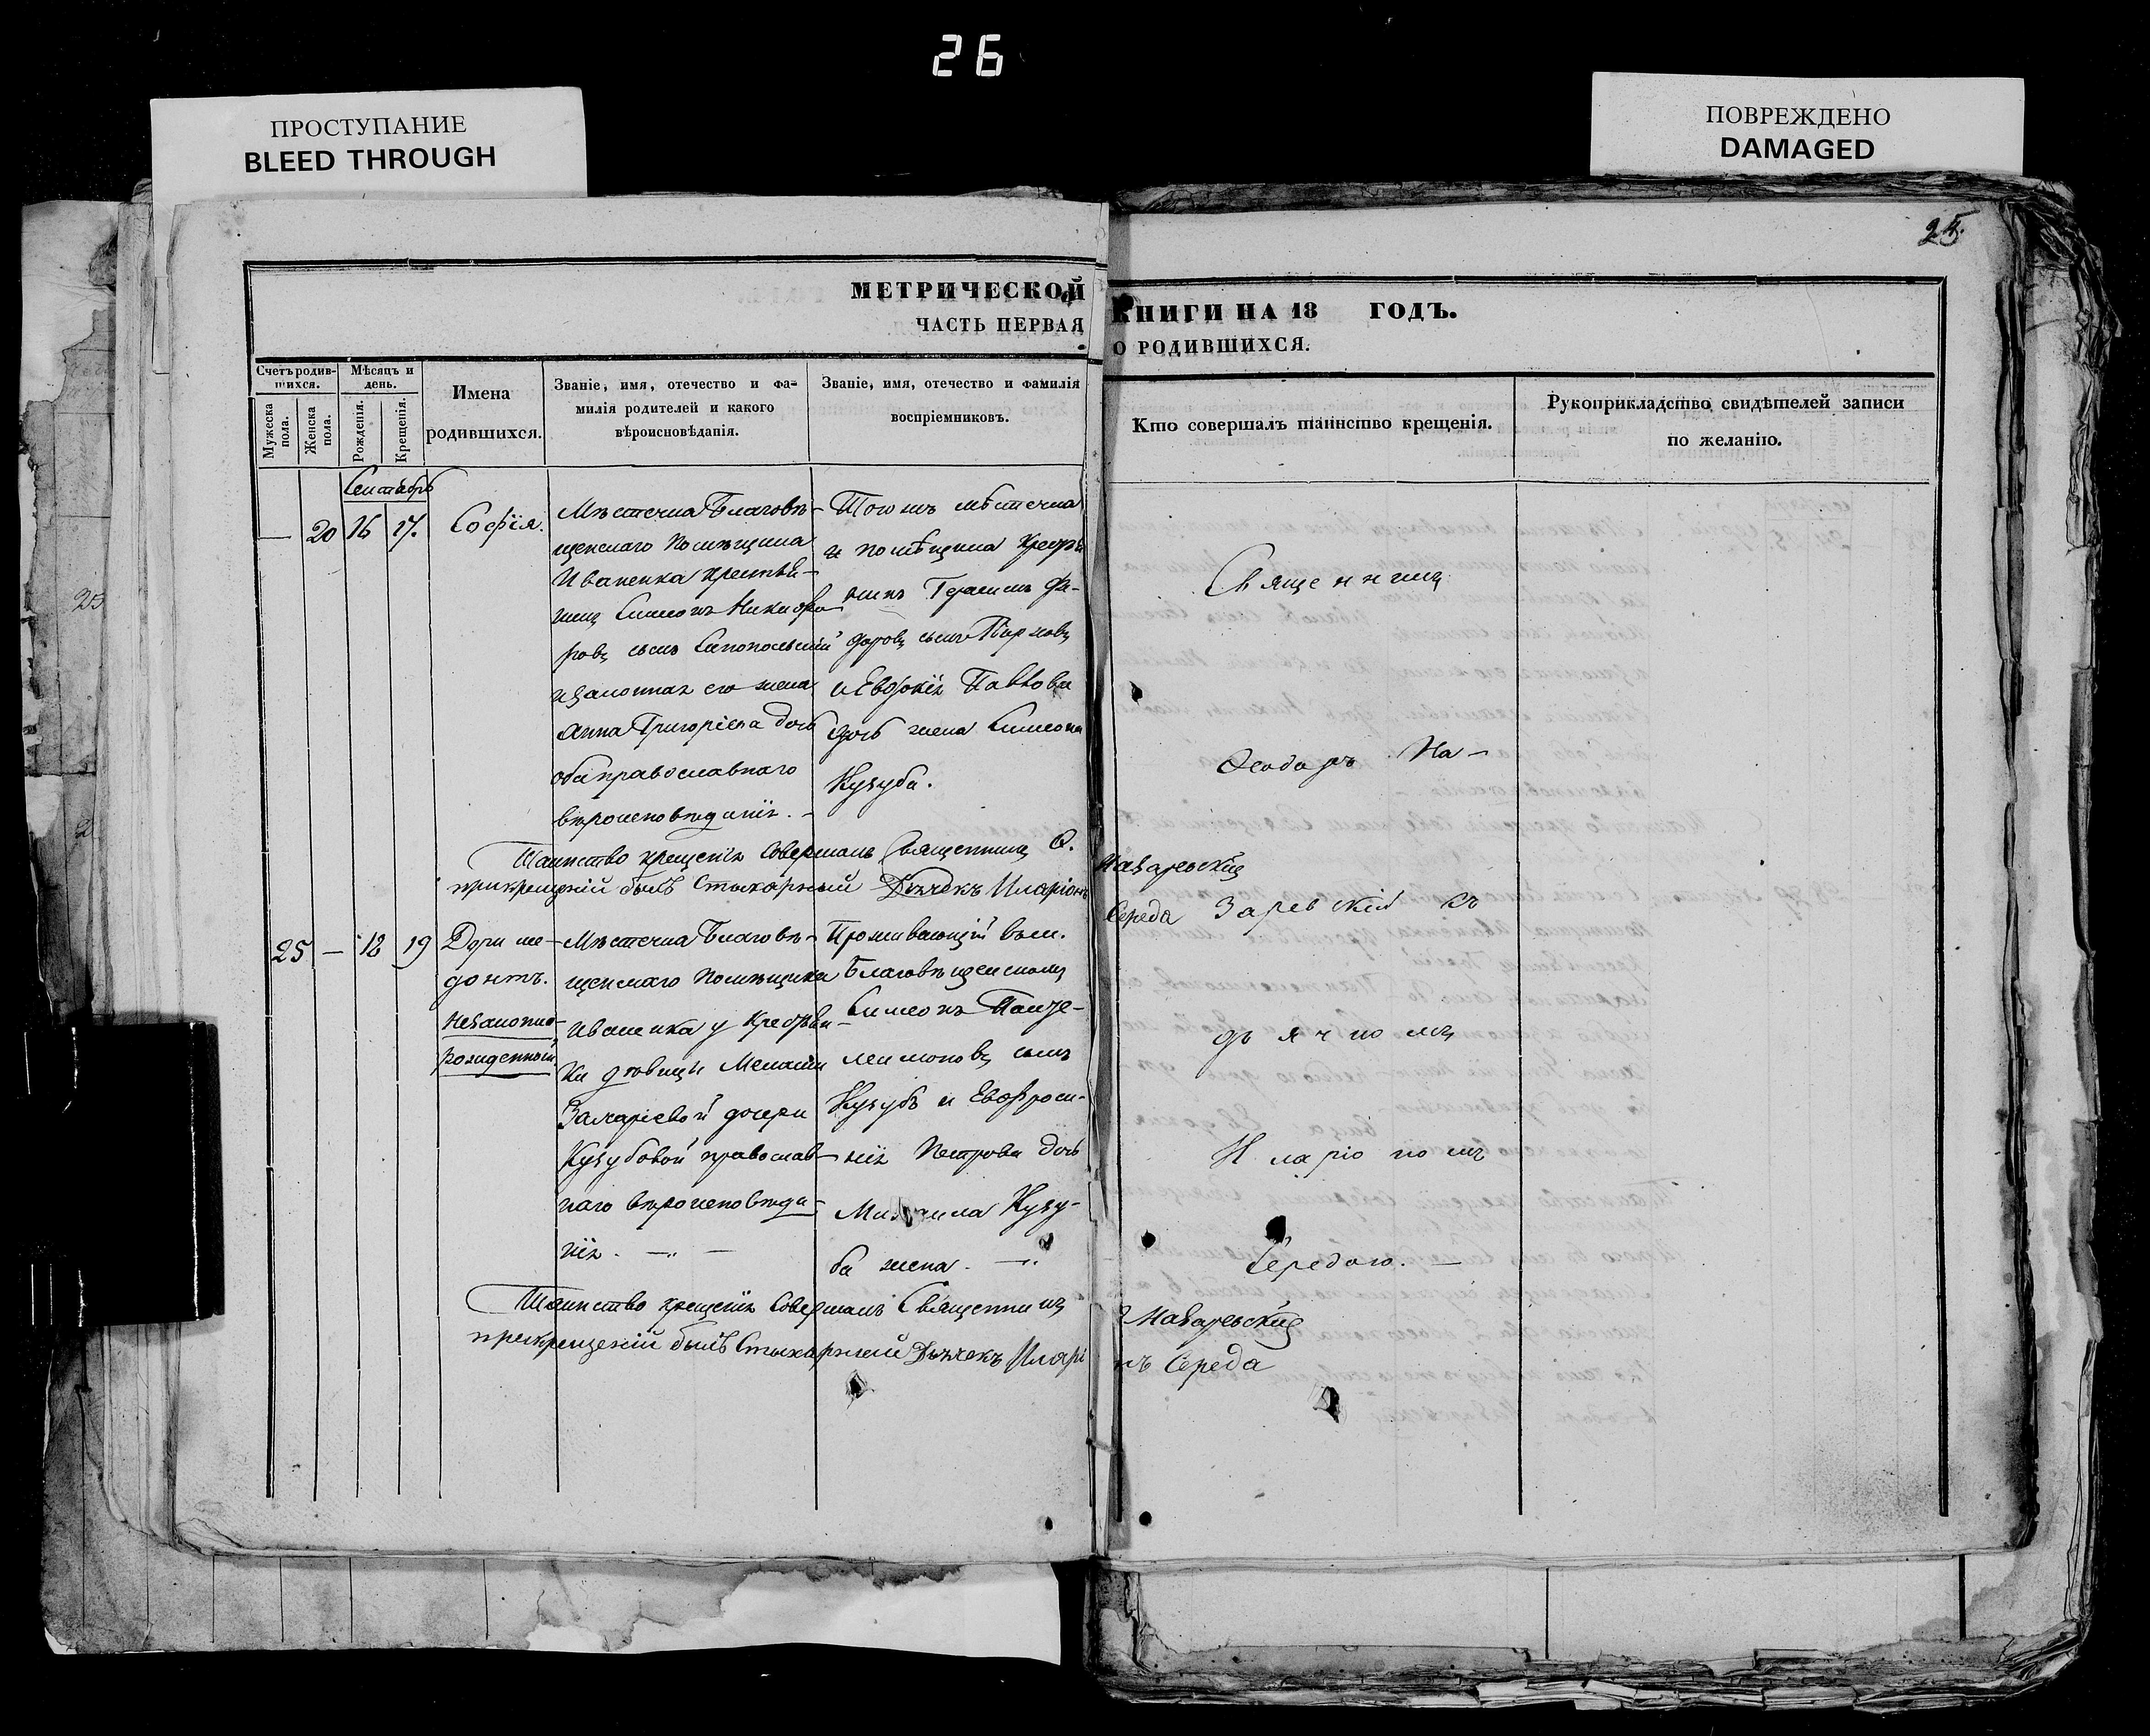 26
ПРОСТУПАНИЕ
BLEED THROUGH
ПОВРЕЖДЕНО
DAMAGED
25
МЕТРИЧЕСКОЙ КНИГИ НА 18 ГОДЪ.
ЧАСТЬ ПЕРВАЯ О РОДИВШИХСЯ.
Счетъ родив-
шихся.
Мужеска пола.
Женска пола.
Мѣсяцъ и
день.
Рожденія.
Крещенія.
Имена
родившихся.
Званіе, имя, отечество и фа-
милія родителей и какого
вѣроисновѣданія.
Званіе, имя, отечество и фамилія
воспріемниковъ.
Кто совершалъ таинство крещенія.
Рукоприкладство свидѣтелей записи
по желанію.
Сентябрь
— 20 16 17. Софія.
Мѣстечка Благовѣ-
щенскаго Помѣщика
Иваненка крестья-
нинъ Симеонъ Никифо-
ровъ сынъ
изаконная его жена
Анна Григоріева дочь
оба православнаго
вѣроисповѣданія. -
Того жъ мѣстечка
и помѣщика крестья-
нинъ Герасимъ Фе-
доровъ сынъ
и Евдокія Павлова
дочь жена Симеона
Кузуба.
Священникъ
Ѳеодоръ На-
заревскій съ
дьячкомъ
Иларіономъ
Середою. —
Таинство крещенія Совершалъ Священникъ Ѳ. Назаревскій
прикрещеніи былъ Стихарный Дьячекъ Иларіонъ Середа
25 — 18 19 Дори ме-
донтъ.
незаконно-
рожденный.
Мѣстечка Благовѣ-
щенскаго помѣщика
Иваненка у крестьян-
ки дѣвицы Меланіи
Захаріевой дочери
Кузубовой православ-
наго вѣроисповѣда-
нія. — „ —
Проживающій въ м.
Благовѣщенскомъ
Симеонъ Панте-
леимоновъ сынъ
Кузубъ и Евфроси-
нія Петрова дочь
Михаила Кузу-
ба жена. — „
Таинство крещенія Совершалъ Священникъ Ѳ Назаревскій
прикрещеніи былъ Стихарный Дьячекъ Иларіонъ Середа